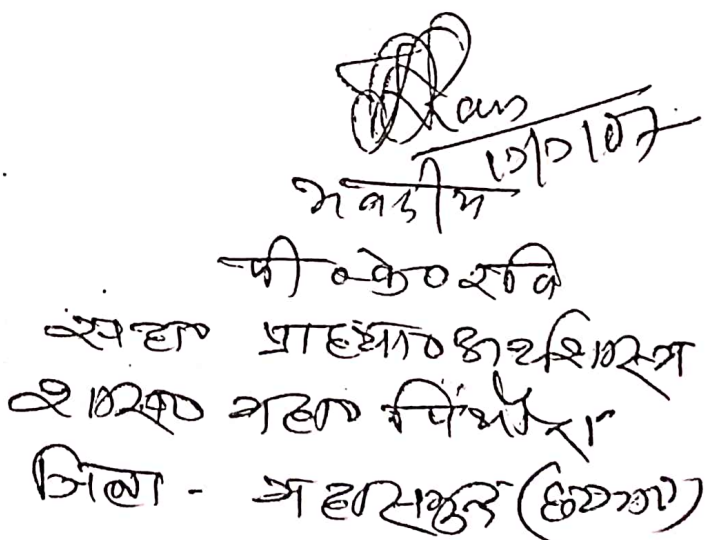 भवदीय
पी०के०रवि
सहा० प्राध्या० अर्थशास्त्र
शास० महा० पिथौरा
जिला - महासमुंद (छ०ग०)